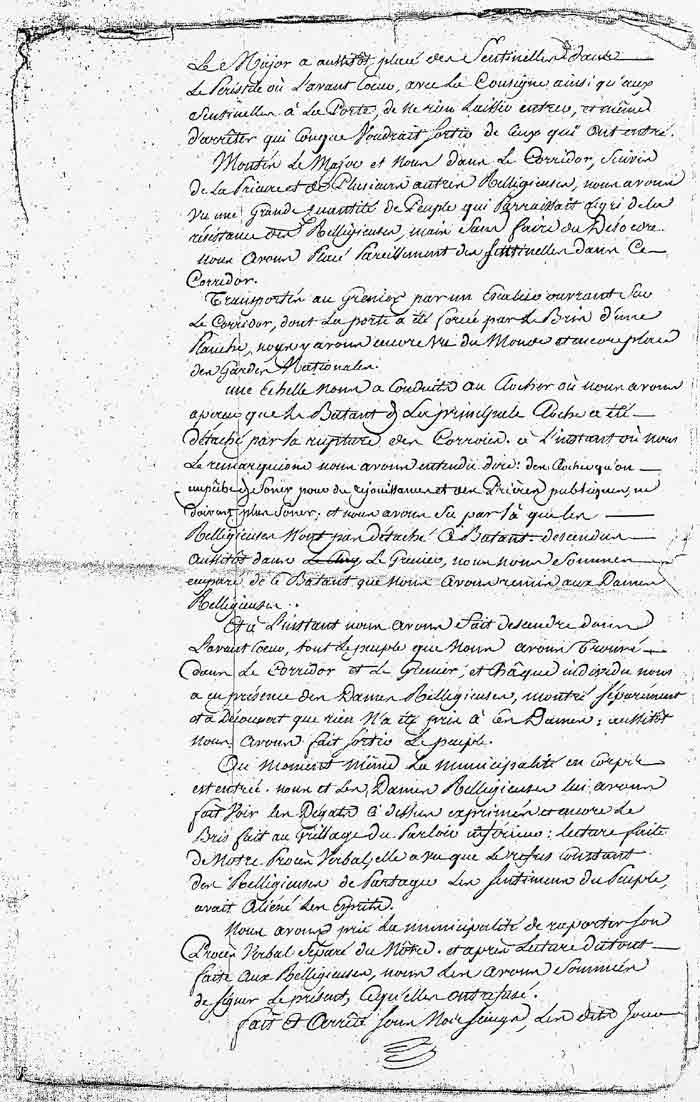 Le Major a aussitôt placé des Sentinelles dans
Le Peristile où L'avant Cœur, avec La Consigne ainsi qu'aux
Sentinelles à La Porte, de ne rien Laisser entrer, et même
d'arrêter qui Conque Voudrait Sortir de Ceux qui ont entré.
Montés Le Major et Nous dans Le Corridor, Suivis
de La Prieure et de Plusieurs autres Relligieuses, nous avons
Vu une Grande quantité de Peuple qui Parraissait aigri de la
résistance des Relligieuses, mais Sans faire du Désordre
nous avons Placé Pareillement des Sentinelles dans Ce
Corridor.
Transportés au Grenier par un Escalier ouvrant Sur
Le Corridor, dont La porte a été forcée par Le Bris d'une
Planche, nous y avons encore Vu du Monde et encore placé
des Gardes Nationales.
une Echelle nous a Conduits au Clocher où nous avons
aperçu que Le Batant de La principale Cloche a été
détaché par La rupture des Corroies. à L'instant où nous
Le remarquions nous avons entendu dire: des Cloches qu'on
empêche de Soner pour des rejouissances et des Prières publiques, ne
doivent plus Soner; et nous avons Su par là que les
Relligieuses N'ont pas détaché Ce Batant. descendus
aussitôt dans Le Grenier, nous nous Sommes
emparé de Ce Batant que Nous avons remis aux Dames
Relligieuses.
Et à L'instant nous avons fait descendre dans
L'avant Cœur, tout Le peuple que Nous avons trouvé
dans Le Corridor et Le Grenier, et Châque individu nous
a en présence des Dames Relligieuses, montré Séparément
et à Découvert que rien N'a été pris à Ces Dames; aussitôt
nous avons fait Sortir Le peuple.
Au moment même La municipalité en Corps
est entrée. nous et Les Dames Relligieuses lui avons
fait Voir Les Dégats Ci dessus exprimés et encore Le
Bris fait au Grillage du Parloir inférieur: Lecture faite
de Notre Procès Verbal, elle a vu que Le refus Constant
des Relligieuses de Partager Les Sentimens du Peuple,
avait Aliéné Les Esprits.
Nous avons prié La municipalité de raporter Son
Procès Verbal Séparé du Nôtre. et après Lecture du tout
faite aux Relligieuses, nous Les avons Sommées
de Signer Le présent, Ce qu'elles ont refusé.
fait et Arrêté Sous Nos Seings, Les dits Jour